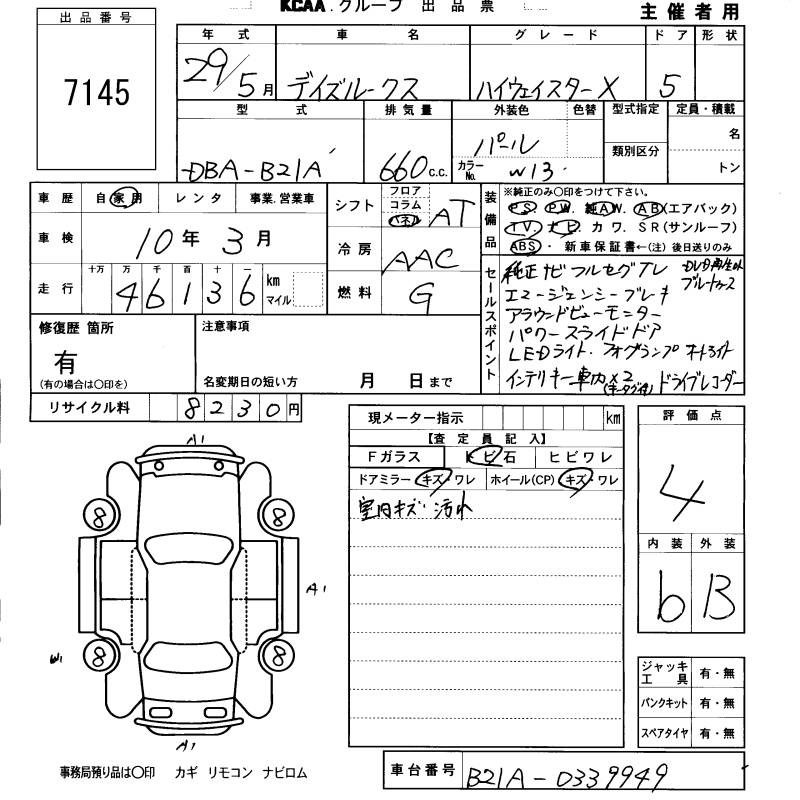 KCAA.グループ 出品票
主催者用
出品番号
7145
年式 車名 グレード ドア 形状
29/5月 デイズルークス ハイウェイスターX 5
型式 排気量 外装色 色替 型式指定 定員・積載
DBA-B21A 660c.c. パール カラーNo. W13 類別区分 名
トン
車歴 自家用 レンタ 事業.営業車
車検 10年3月
走行 十万 万 千 百 十 一 km マイル
46136
シフト フロア コラム パネル AT
冷房 AAC
燃料 G
装備品
※純正のみ〇印をつけて下さい。
PS. PW. 純AW. AB(エアバック)
TV. ナビ. カワ. SR(サンルーフ)
ABS・ 新車保証書←(注)後日送りのみ
セールスポイント
純正ナビ フルセグTV DVD再生OK
ブルートゥース
エマージェンシーブレーキ
アラウンドビューモニター
パワースライドドア
LEDライト.フォグランプ オートライト
インテリキー車内×2 ドライブレコーダー
修復歴 箇所
有
(有の場合は〇印を)
注意事項
名変期日の短い方 月 日まで
リサイクル料 8230円
現メーター指示 km
【査定員記入】
Fガラス トビ石 ヒビワレ
ドアミラー キズ・ワレ ホイール(CP) キズ・ワレ
室内キズ 汚れ
評価点
4
内装 外装
b B
A1
8 8
A1
W1
8 8
A1
ジャッキ工具 有・無
パンクキット 有・無
スペアタイヤ 有・無
事務局預り品は〇印 カギ リモコン ナビロム
車台番号 B21A-0339949